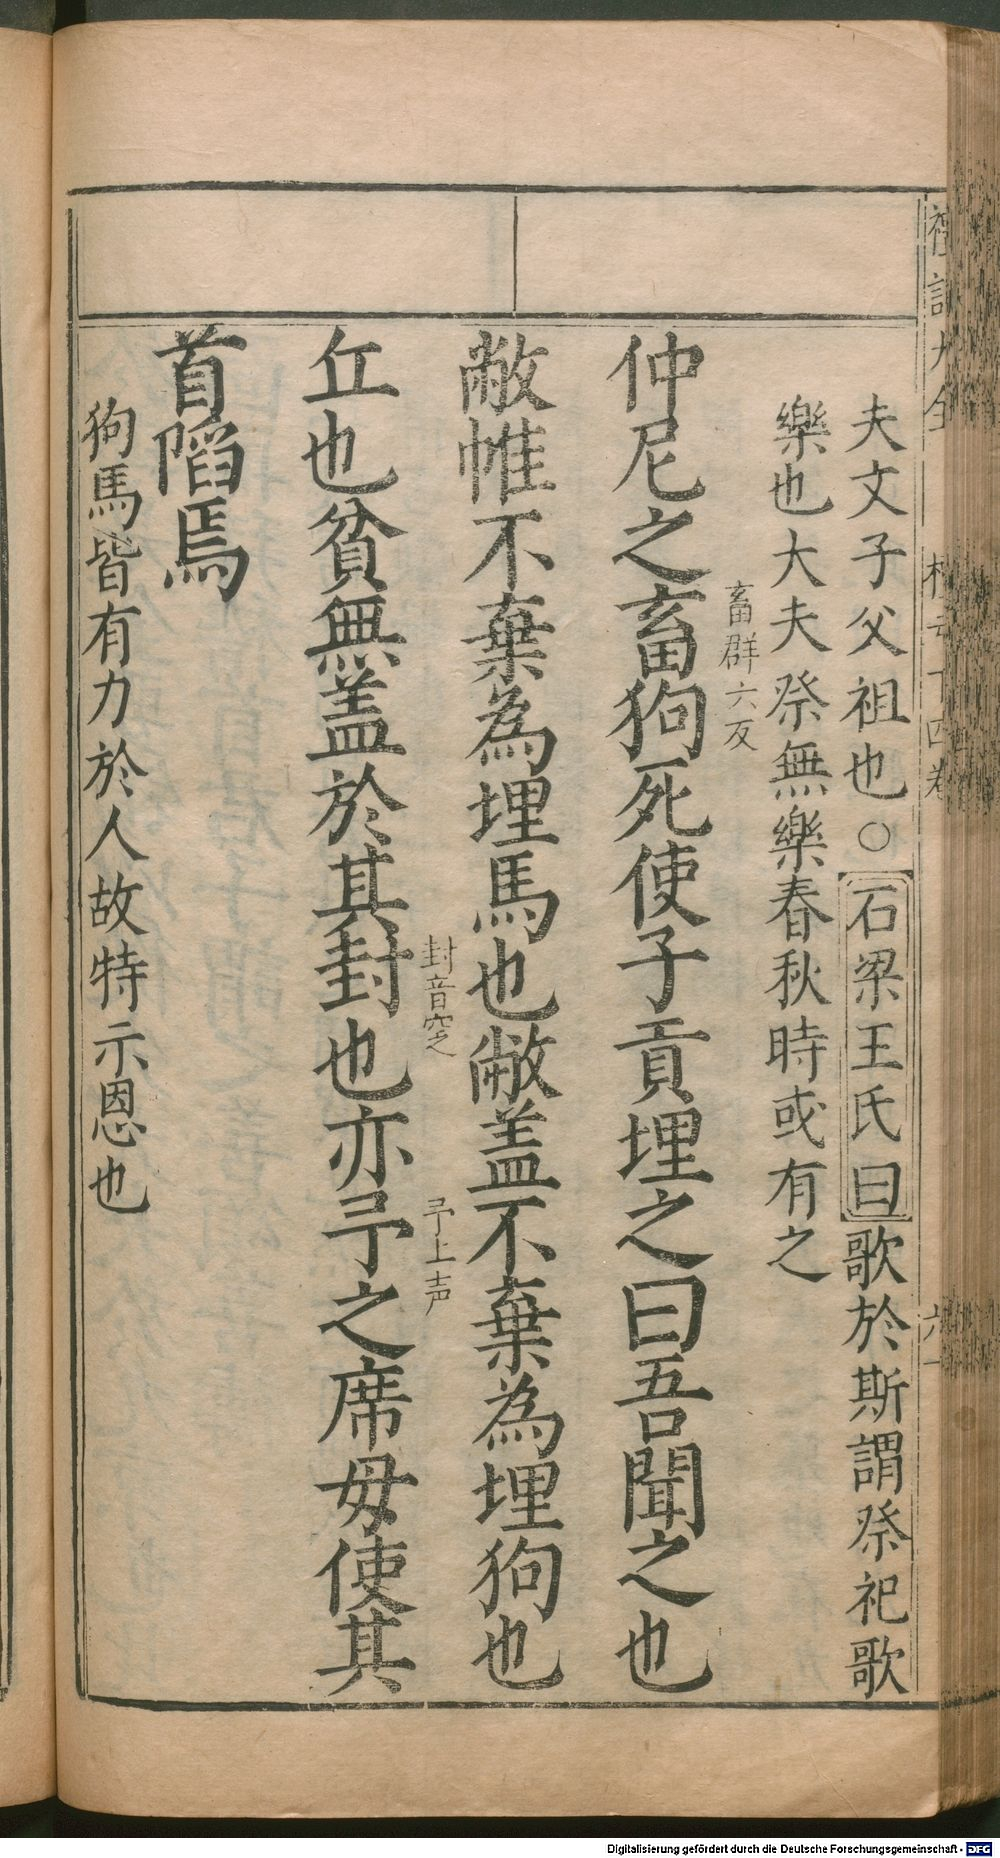 夫文子父祖也○石梁王氏曰歌於斯謂祭祀歌
樂也大夫祭無樂春秋時或有之
畜群六反
仲尼之畜狗死使子貢埋之曰吾聞之也
敝帷不棄為埋馬也敝盖不棄為埋狗也
封音窆
予上声
丘也貧無盖於其封也亦予之席毋使其
首陷焉
狗馬皆有力於人故特示恩也
Digitalisierung gefördert durch die Deutsche Forschungsgemeinschaft - DFG